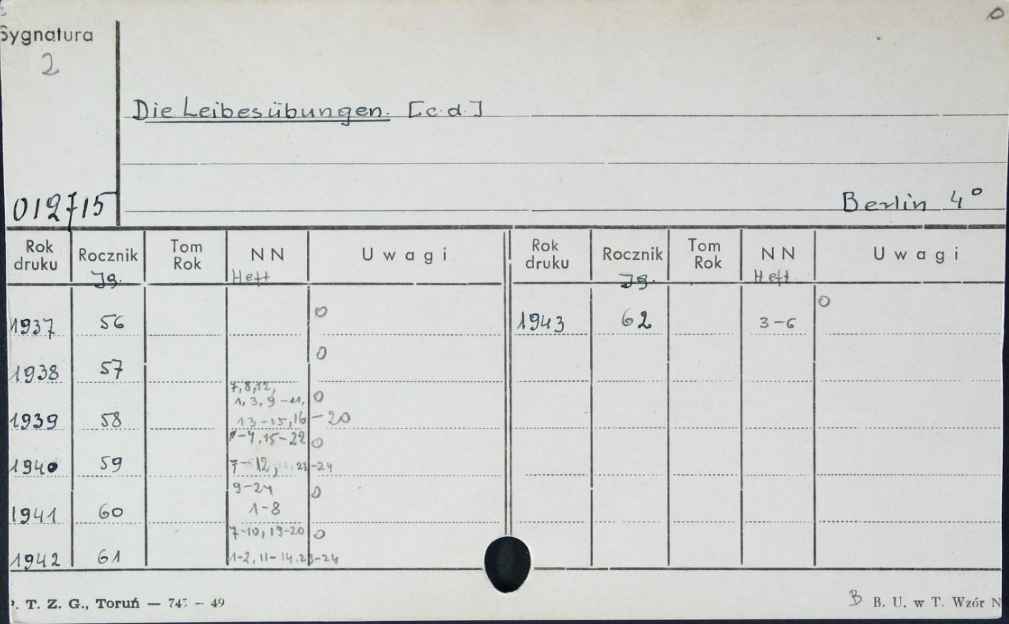 Sygnatura
2
0
Die Leibesübungen. [c.d.]
012715
Berlin 4°
Rok druku Rocznik Tom Rok NN Uwagi Rok druku Rocznik Tom Rok NN Uwagi
Jg. Heft Jg. Heft
1937 56 0 1943 62 3-6 0
1938 57 0
7,8,12,
1, 3, 9-11, 0
1939 58 13-15, 16-20
-4, 15-22 0
1940 59 7-12, -24
9-24 0
1941 60 1-8
7-10, 19-20 0
1942 61 1-2, 11-14, -24
T. Z. G., Toruń — 74 - 49
B B. U. w T. Wzór N